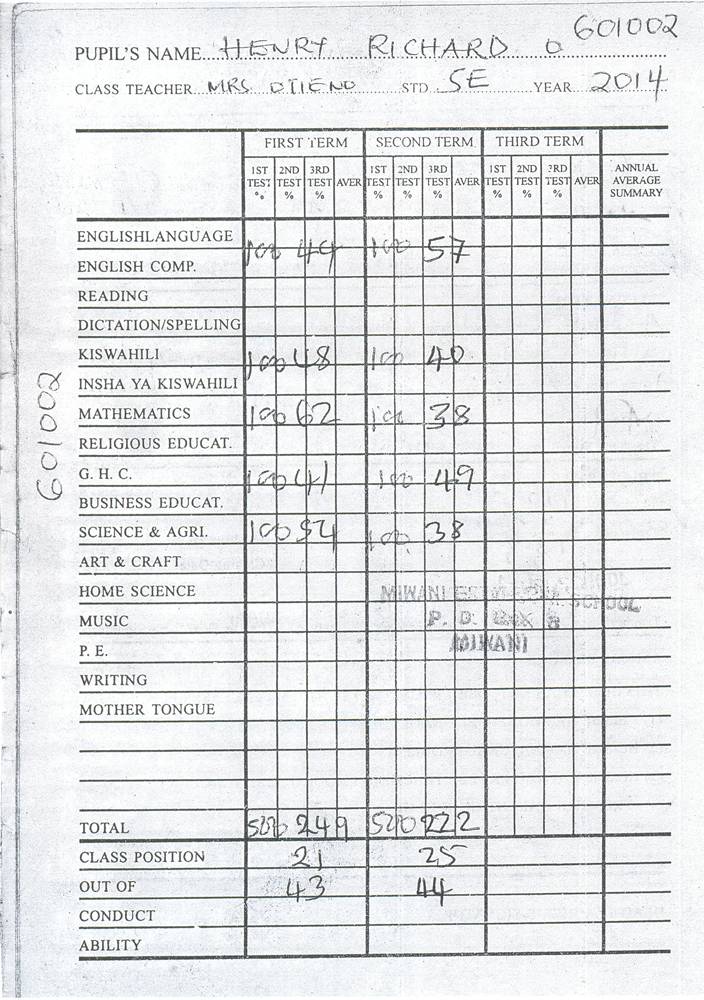 601002
PUPIL'S NAME HENRY RICHARD O
CLASS TEACHER MRS OTIENO STD 5E YEAR 2014
FIRST TERM SECOND TERM THIRD TERM
1ST TEST % 2ND TEST % 3RD TEST % AVER 1ST TEST % 2ND TEST % 3RD TEST % AVER 1ST TEST % 2ND TEST % 3RD TEST % AVER ANNUAL AVERAGE SUMMARY
ENGLISHLANGUAGE
100 44 100 57
ENGLISH COMP.
READING
DICTATION/SPELLING
KISWAHILI 100 48 100 40
INSHA YA KISWAHILI
MATHEMATICS 100 62 100 38
RELIGIOUS EDUCAT.
G. H. C. 100 41 100 49
BUSINESS EDUCAT.
SCIENCE & AGRI. 100 54 100 38
ART & CRAFT
HOME SCIENCE
MIWANI SCHOOL
MUSIC
P. O. BOX 8
P. E.
MIWANI
WRITING
MOTHER TONGUE
TOTAL 500 249 500 222
CLASS POSITION 21 25
OUT OF 43 44
CONDUCT
ABILITY
601002